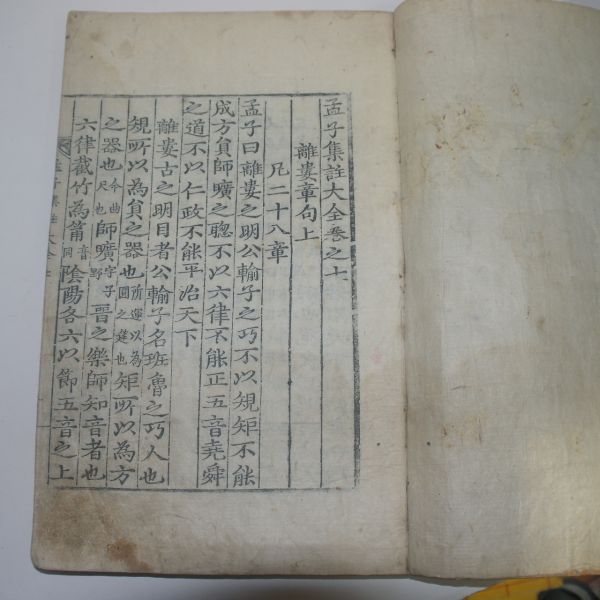 孟子集註大全卷之七
離婁章句上
凡二十八章
孟子曰離婁之明公輸子之巧不以規矩不能
成方員師曠之聰不以六律不能正五音堯舜
之道不以仁政不能平治天下
離婁古之明目者公輸子名班魯之巧人也
規所以為員之器也所運以為圓之筳也矩所以為方
之器也令曲尺也師曠字子野晉之樂師知音者也
六律截竹為筩音同陰陽各六以節五音之上
孟子集註大全